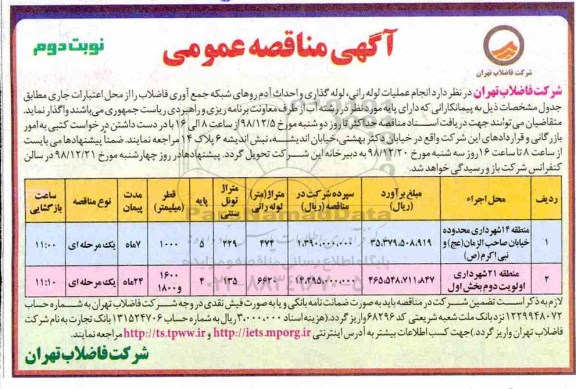 آگهی مناقصه عمومی
نوبت دوم
شرکت فاضلاب تهران
شرکت فاضلاب تهران در نظر دارد انجام عملیات لوله رانی، لوله گذاری و احداث آدم روهای شبکه جمع آوری فاضلاب را از محل اعتبارات جاری مطابق
جدول مشخصات ذیل به پیمانکارانی که دارای پایه مورد نظر در رشته آب از طرف معاونت برنامه ریزی و راهبردی ریاست جمهوری می‌باشند واگذار نماید.
متقاضیان می‌توانند جهت دریافت اسناد مناقصه حداکثر تا روز دو شنبه مورخ ۹۸/۱۲/۵ از ساعت ۸ الی ۱۶ با در دست داشتن درخواست کتبی به امور
بازرگانی و قراردادهای این شرکت واقع در خیابان دکتر بهشتی، خیابان اندیشه، نبش اندیشه ۶ پلاک ۱۴ مراجعه نمایند. ضمناً پیشنهادها می بایست
از ساعت ۸ تا ساعت ۱۶ روز سه شنبه مورخ ۹۸/۱۲/۲۰ به دبیرخانه این شرکت تحویل گردد. پیشنهادها در روز چهارشنبه مورخ ۹۸/۱۲/۲۱ در سالن
کنفرانس شرکت باز و رسیدگی خواهد شد.
ردیف محل اجراء مبلغ برآورد (ریال) سپرده شرکت در مناقصه (ریال) متراژ (متر) لوله رانی متراژ تونل سنتی پایه قطر (میلیمتر) مدت پیمان نوع مناقصه ساعت بازگشایی
۱ منطقه ۱۴ شهرداری محدوده خیابان صاحب الزمان (عج) و نبی اکرم (ص) ۳۵،۳۷۹،۵۰۸،۹۱۹ ۱،۳۹۰،۰۰۰،۰۰۰ ۴۷۴ ۳۲۹ ۵ ۱۰۰۰ ۷ماه یک مرحله ای ۱۱:۰۰
۲ منطقه ۲۱ شهرداری اولویت دوم بخش اول ۴۶۵،۵۴۸،۷۱۱،۸۴۷ ۶۶۲۰ ۱۶۰۰ و ۱۸۰۰ ۲۴ماه یک مرحله ای ۱۱:۱۰
لازم به ذکر است تضمین شرکت در مناقصه باید به صورت ضمانت نامه بانکی و یا به صورت فیش نقدی در وجه شرکت فاضلاب تهران به شماره حساب
۱۲۲۹۹۴۸۰۷۲ نزد بانک ملت شعبه شریعتی کد ۶۸۲۹۶ واریز گردد. (هزینه اسناد ۳،۰۰۰،۰۰۰ ریال به شماره حساب ۱۳۱۵۲۴۷۰۶ بانک تجارت به نام شرکت
فاضلاب تهران واریز گردد.) جهت کسب اطلاعات بیشتر به آدرس اینترنتی http://iets.mporg.ir و http://ts.tpww.ir مراجعه نمایند.
شرکت فاضلاب تهران